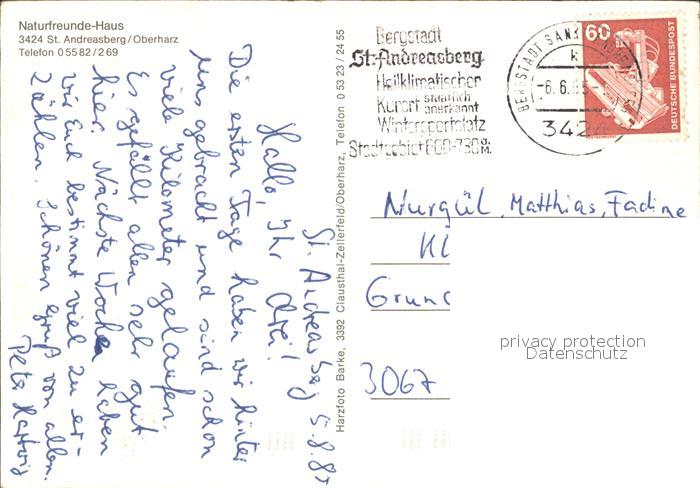 Naturfreunde-Haus
3424 St. Andreasberg/Oberharz
Telefon 0 55 82 / 2 69
St. Andreasberg 5.8.85
Hallo, Ihr drei!
Die ersten Tage haben wir hinter
uns gebracht und sind schon
viele Kilometer gelaufen.
Es gefällt allen sehr gut
hier. Nächste Woche haben
wir Euch bestimmt viel zu er-
zählen. Schönen Gruß von allen.
Peter Hartwig
Harzfoto Barke, 3392 Clausthal-Zellerfeld/Oberharz, Telefon 0 53 23 / 24 55
Bergstadt
St. Andreasberg
Heilklimatischer
Kurort staatlich anerkannt
Wintersportplatz
Stadtgebiet 600-
BERGSTADT SANKT
-6.6.85-
342
60
DEUTSCHE BUNDESPOST
Nurgül, Matthias, Fadine
Kl
Grun
3067
privacy protection
Datenschutz